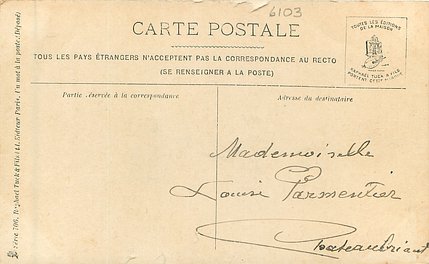 6103
CARTE POSTALE
TOUS LES PAYS ÉTRANGERS N'ACCEPTENT PAS LA CORRESPONDANCE AU RECTO
(SE RENSEIGNER A LA POSTE)
Partie réservée à la correspondance
Adresse du destinataire
TOUTES LES ÉDITIONS
DE LA MAISON
RAPHAEL TUCK & FILS
PORTENT CETTE
Mademoiselle
Louise Parmentier
Chateaubriant
Série 706. Raphael Tuck & Fils Ld. Éditeur Paris. Un mot à la poste (Déposé)